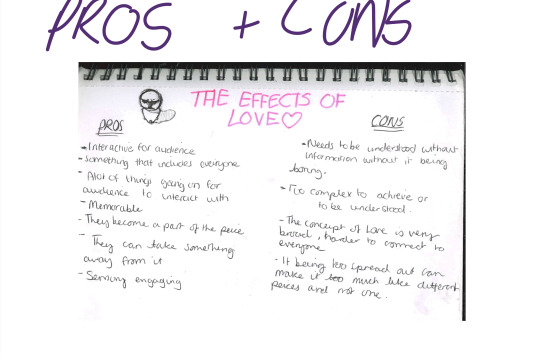 PROS + CONS
THE EFFECTS OF
LOVE
PROS
- Interactive for audience
- Something that includes everyone
- Alot of things going on for
audience to interact with
- Memorable
- They become a part of the peice
- They can take something
away from it
- Sensory engaging
CONS
- Needs to be understood without
information without it being
boring.
- Too complex to achieve or
to be understood.
- The concept of love is very
broad, harder to connect to
everyone
- It being too spread out can
make it too much like different
peices and not one.